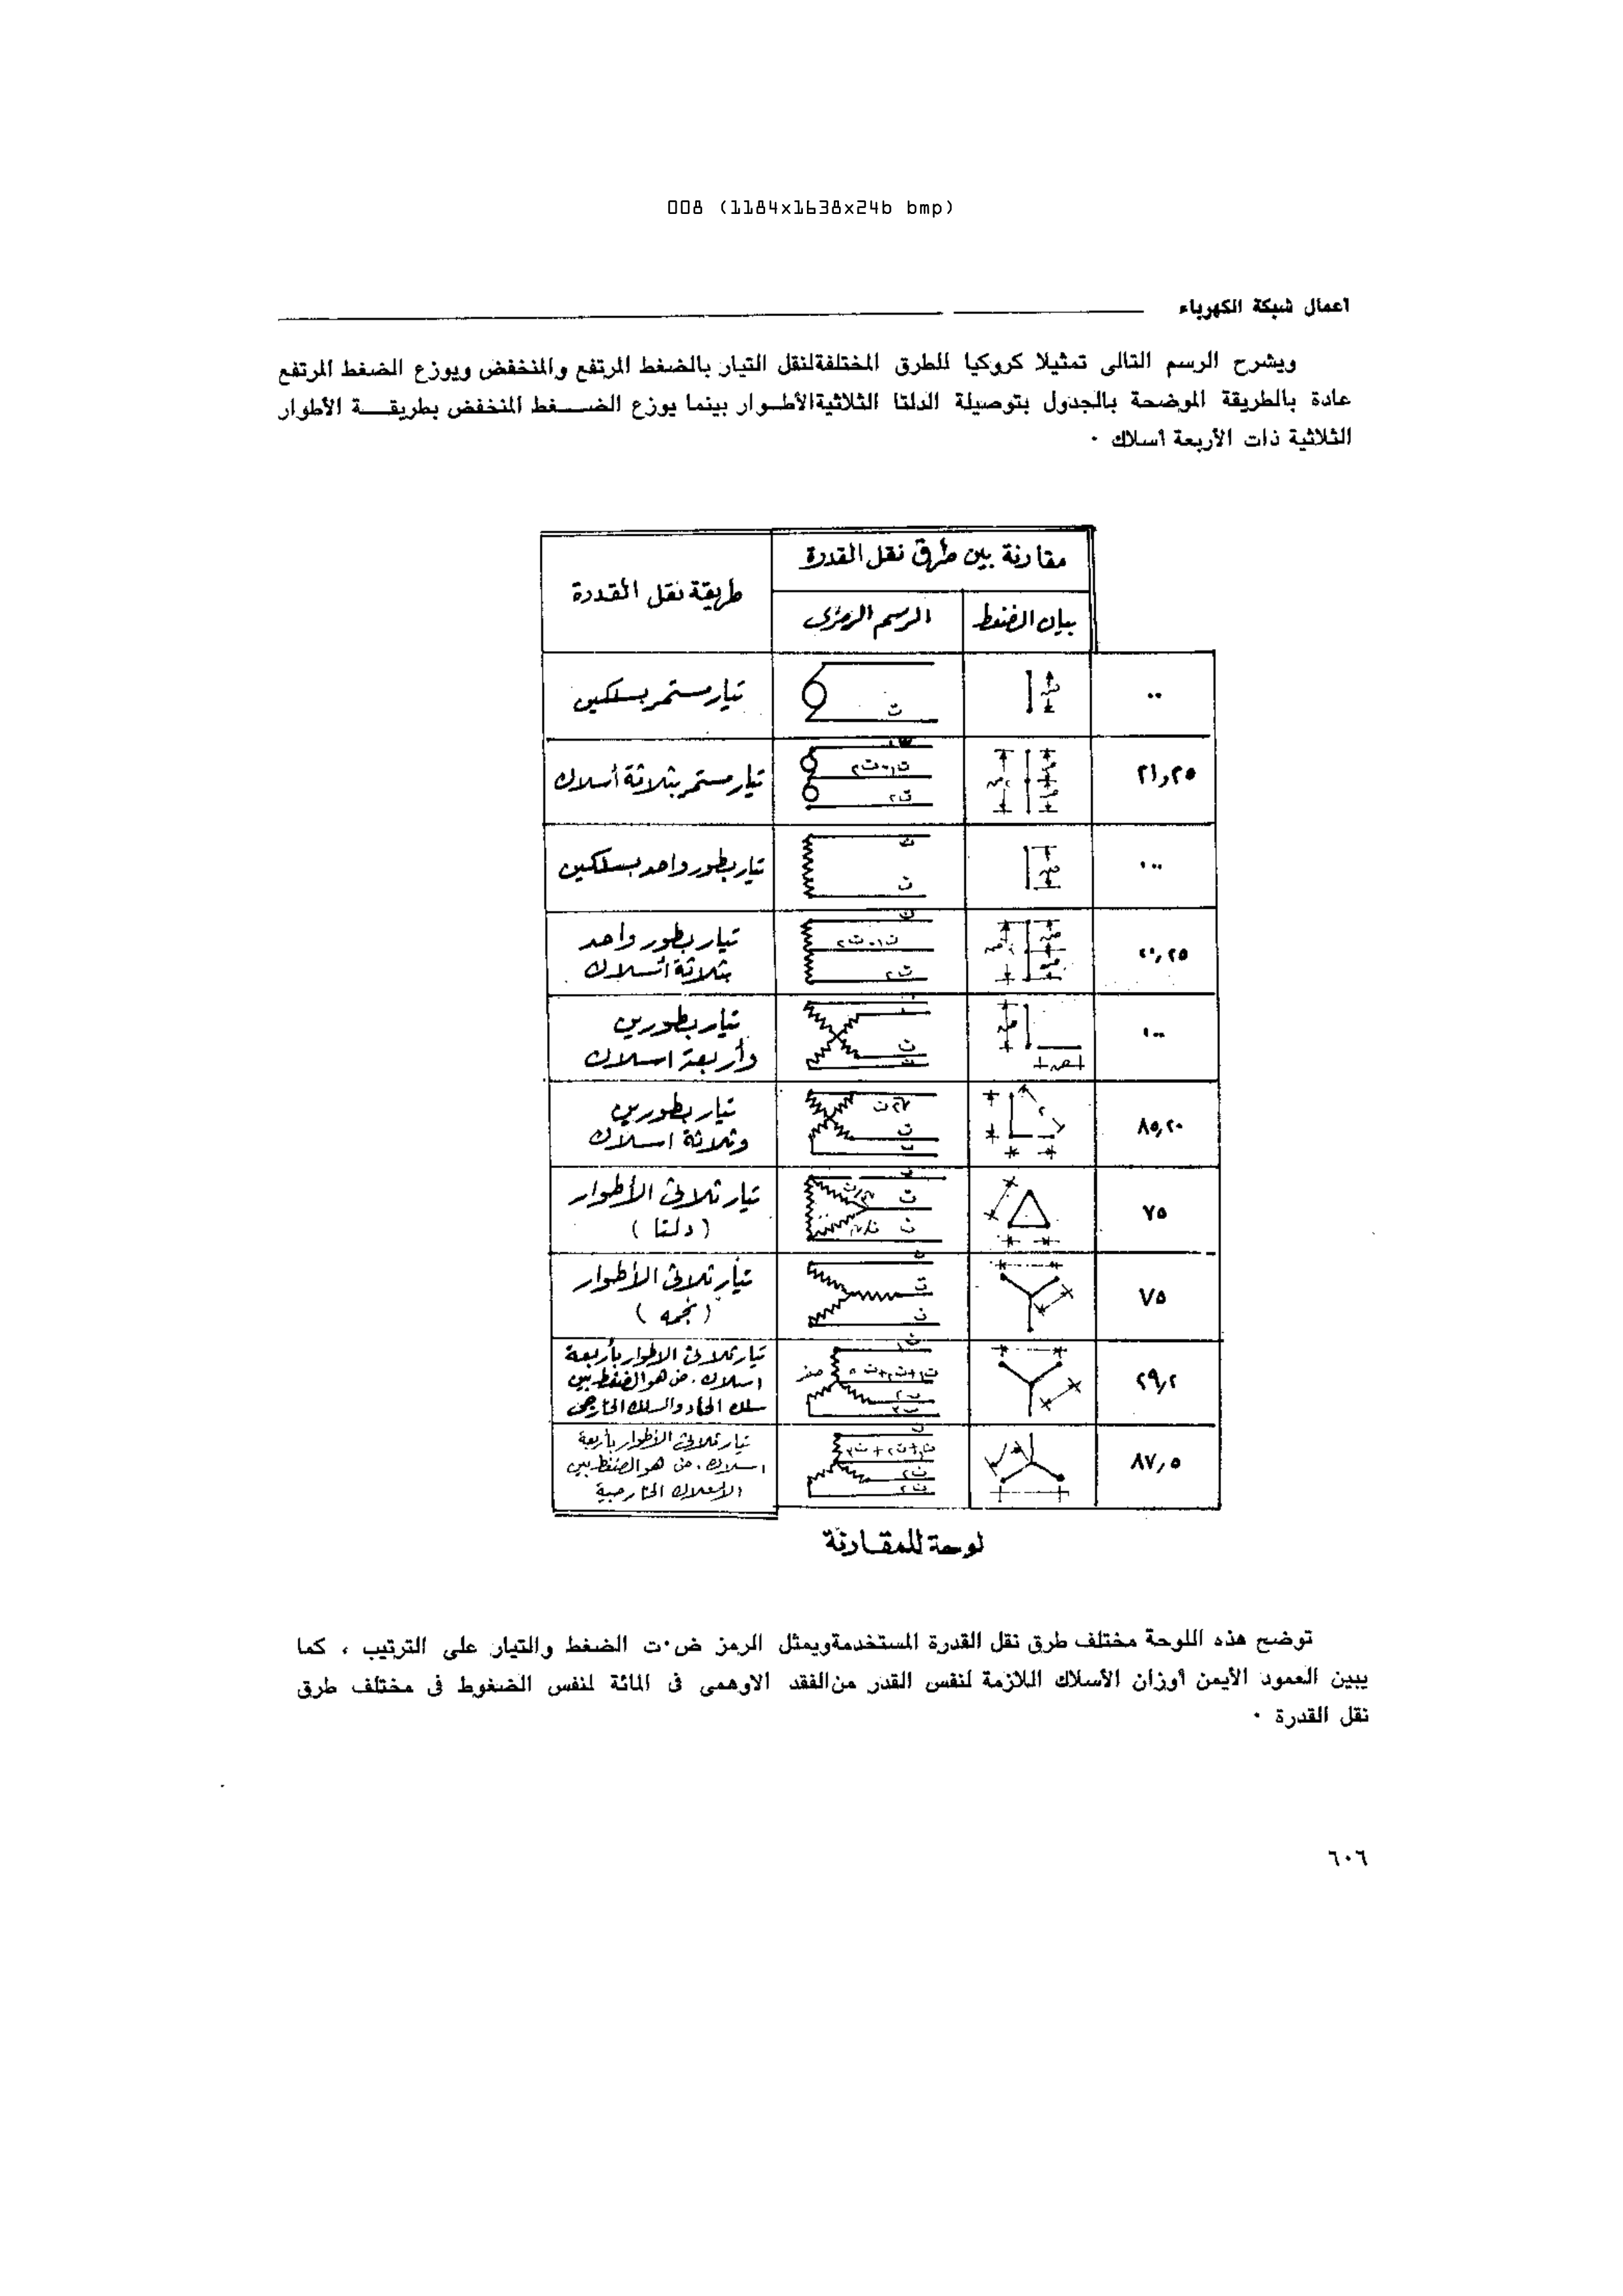 008 (1184x1638x24b bmp)
أعمال شبكة الكهرباء
ويشرح الرسم التالى تمثيلا كروكيا للطرق المختلفة لنقل التيار بالضغط المرتفع والمنخفض ويوزع الضغط المرتفع
عادة بالطريقة الموضحة بالجدول بتوصيلة الدلتا الثلاثية الأطوار بينما يوزع الضغط المنخفض بطريقة الأطوار
الثلاثية ذات الأربعة أسلاك .
مقارنة بين طرق نقل القدرة
بيان الضغط
الرسم الرمزى
طريقة نقل القدرة
تيار مستمر بسلكين
ت
٢١,٢٥
تيار مستمر بثلاثة أسلاك
١٠٠
ت
تيار بطور واحد بسلكين
تيار بطور واحد
بثلاثة أسلاك
١٠٠
ت
تيار بطورين
وأربعة اسلاك
٨٥,٢٠
ت
تيار بطورين
وثلاثة اسلاك
٧٥
ت
ت
تيار ثلاثى الأطوار
( دلتا )
٧٥
ت
ت
تيار ثلاثى الأطوار
( نجمه )
٢٩,٢
صفر
تيار ثلاثى الاطوار بأربعة
اسلاك . ض هو الضغط بين
سلك الحياد والسلك الخارجى
٨٧,٥
تيار ثلاثى الأطوار بأربعة
اسلاك . ض هو الضغط بين
الاسلاك الخارجية
لوحة للمقارنة
توضح هذه اللوحة مختلف طرق نقل القدرة المستخدمة ويمثل الرمز ض.ت الضغط والتيار على الترتيب ، كما
يبين العمود الأيمن أوزان الأسلاك اللازمة لنفس القدر من الفقد الاوهمى فى المائة لنفس الضغوط فى مختلف طرق
نقل القدرة .
٦٠٦